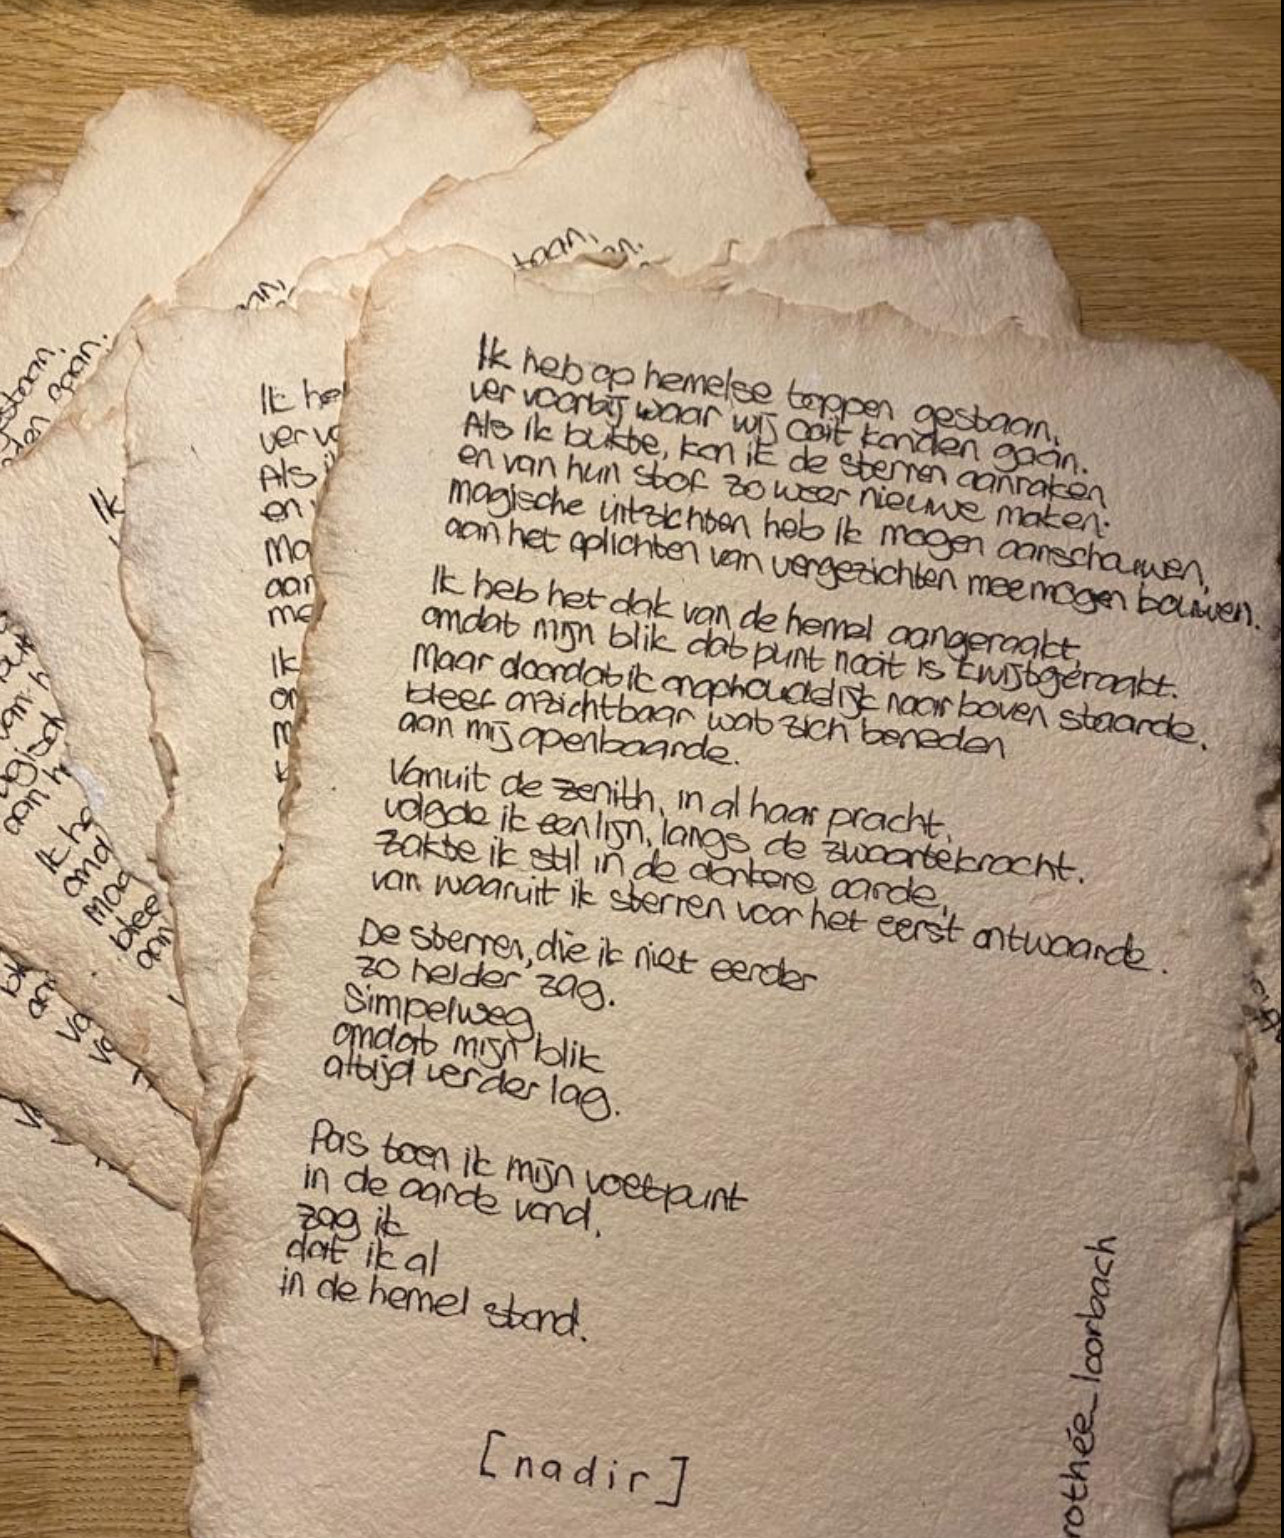 Ik heb op hemelse toppen gestaan,
ver voorbij waar wij ooit konden gaan.
Als ik bukte, kon ik de sterren aanraken
en van hun stof zo weer nieuwe maken.
Magische uitzichten heb ik mogen aanschouwen,
aan het oplichten van vergezichten mee mogen bouwen.
Ik heb het dak van de hemel aangeraakt,
omdat mijn blik dat punt nooit is kwijtgeraakt.
Maar doordat ik onophoudelijk naar boven staarde,
bleef onzichtbaar wat zich beneden
aan mij openbaarde.
Vanuit de zenith, in al haar pracht,
volgde ik een lijn, langs de zwaartekracht.
zakte ik stil in de donkere aarde,
van waaruit ik sterren voor het eerst ontwaarde.
De sterren, die ik niet eerder
zo helder zag.
Simpelweg
omdat mijn blik
altijd verder lag.
Pas toen ik mijn voetpunt
in de aarde vond,
zag ik
dat ik al
in de hemel stond.
[nadir]
rothée_loorbach
Ik he
ver vo
Als i
en v
Ma
aan
me
Ik
om
m
Ik
Ik he
omd
Maa
blee
aan